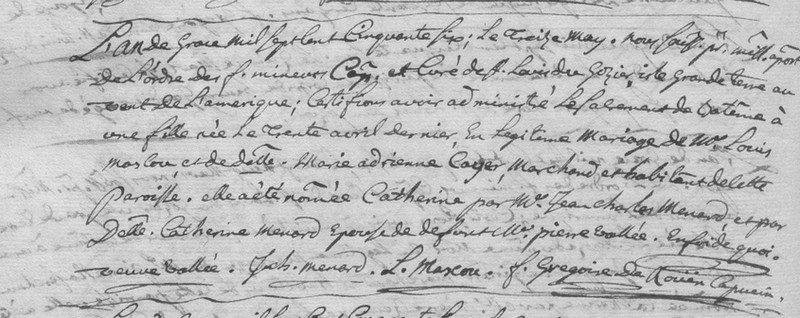 L'an de Grace mil sept Cent Cinquante six, Le Treize May. nous souss. pr. miss. apost
de L'ordre des f. mineurs Cap. et Curé de St. Louis du Gozier, isle Grande terre au
vent de L'amerique; Certifions avoir administré Le Sacrement de Batême à
une fille née Le Trente avril dernier, En Legitime Mariage de Mr. Louis
mascou et de delle. Marie adrienne Cayer Marchand et habitant de Cette
Paroisse. elle a été nomée Catherine par Mr. Jean charles Menard, et par
Delle. Catherine Menard Epouse de defunt Mr. pierre vallée. En foi de quoi.
veuve vallée. J. ch. menard. L. Mascou. f. Gregoire de Rouën Capucin.